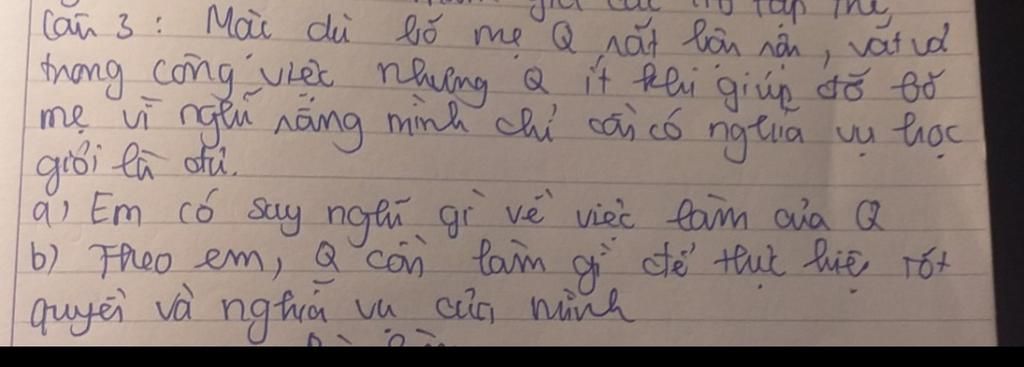 Câu 3: Mặc dù bố mẹ Q rất bận rộn, vất vả
trong công việc nhưng Q ít khi giúp đỡ bố
mẹ vì nghĩ rằng mình chỉ cần có nghĩa vụ học
giỏi là đủ.
a) Em có suy nghĩ gì về việc làm của Q
b) Theo em, Q cần làm gì để thực hiện tốt
quyền và nghĩa vụ của mình